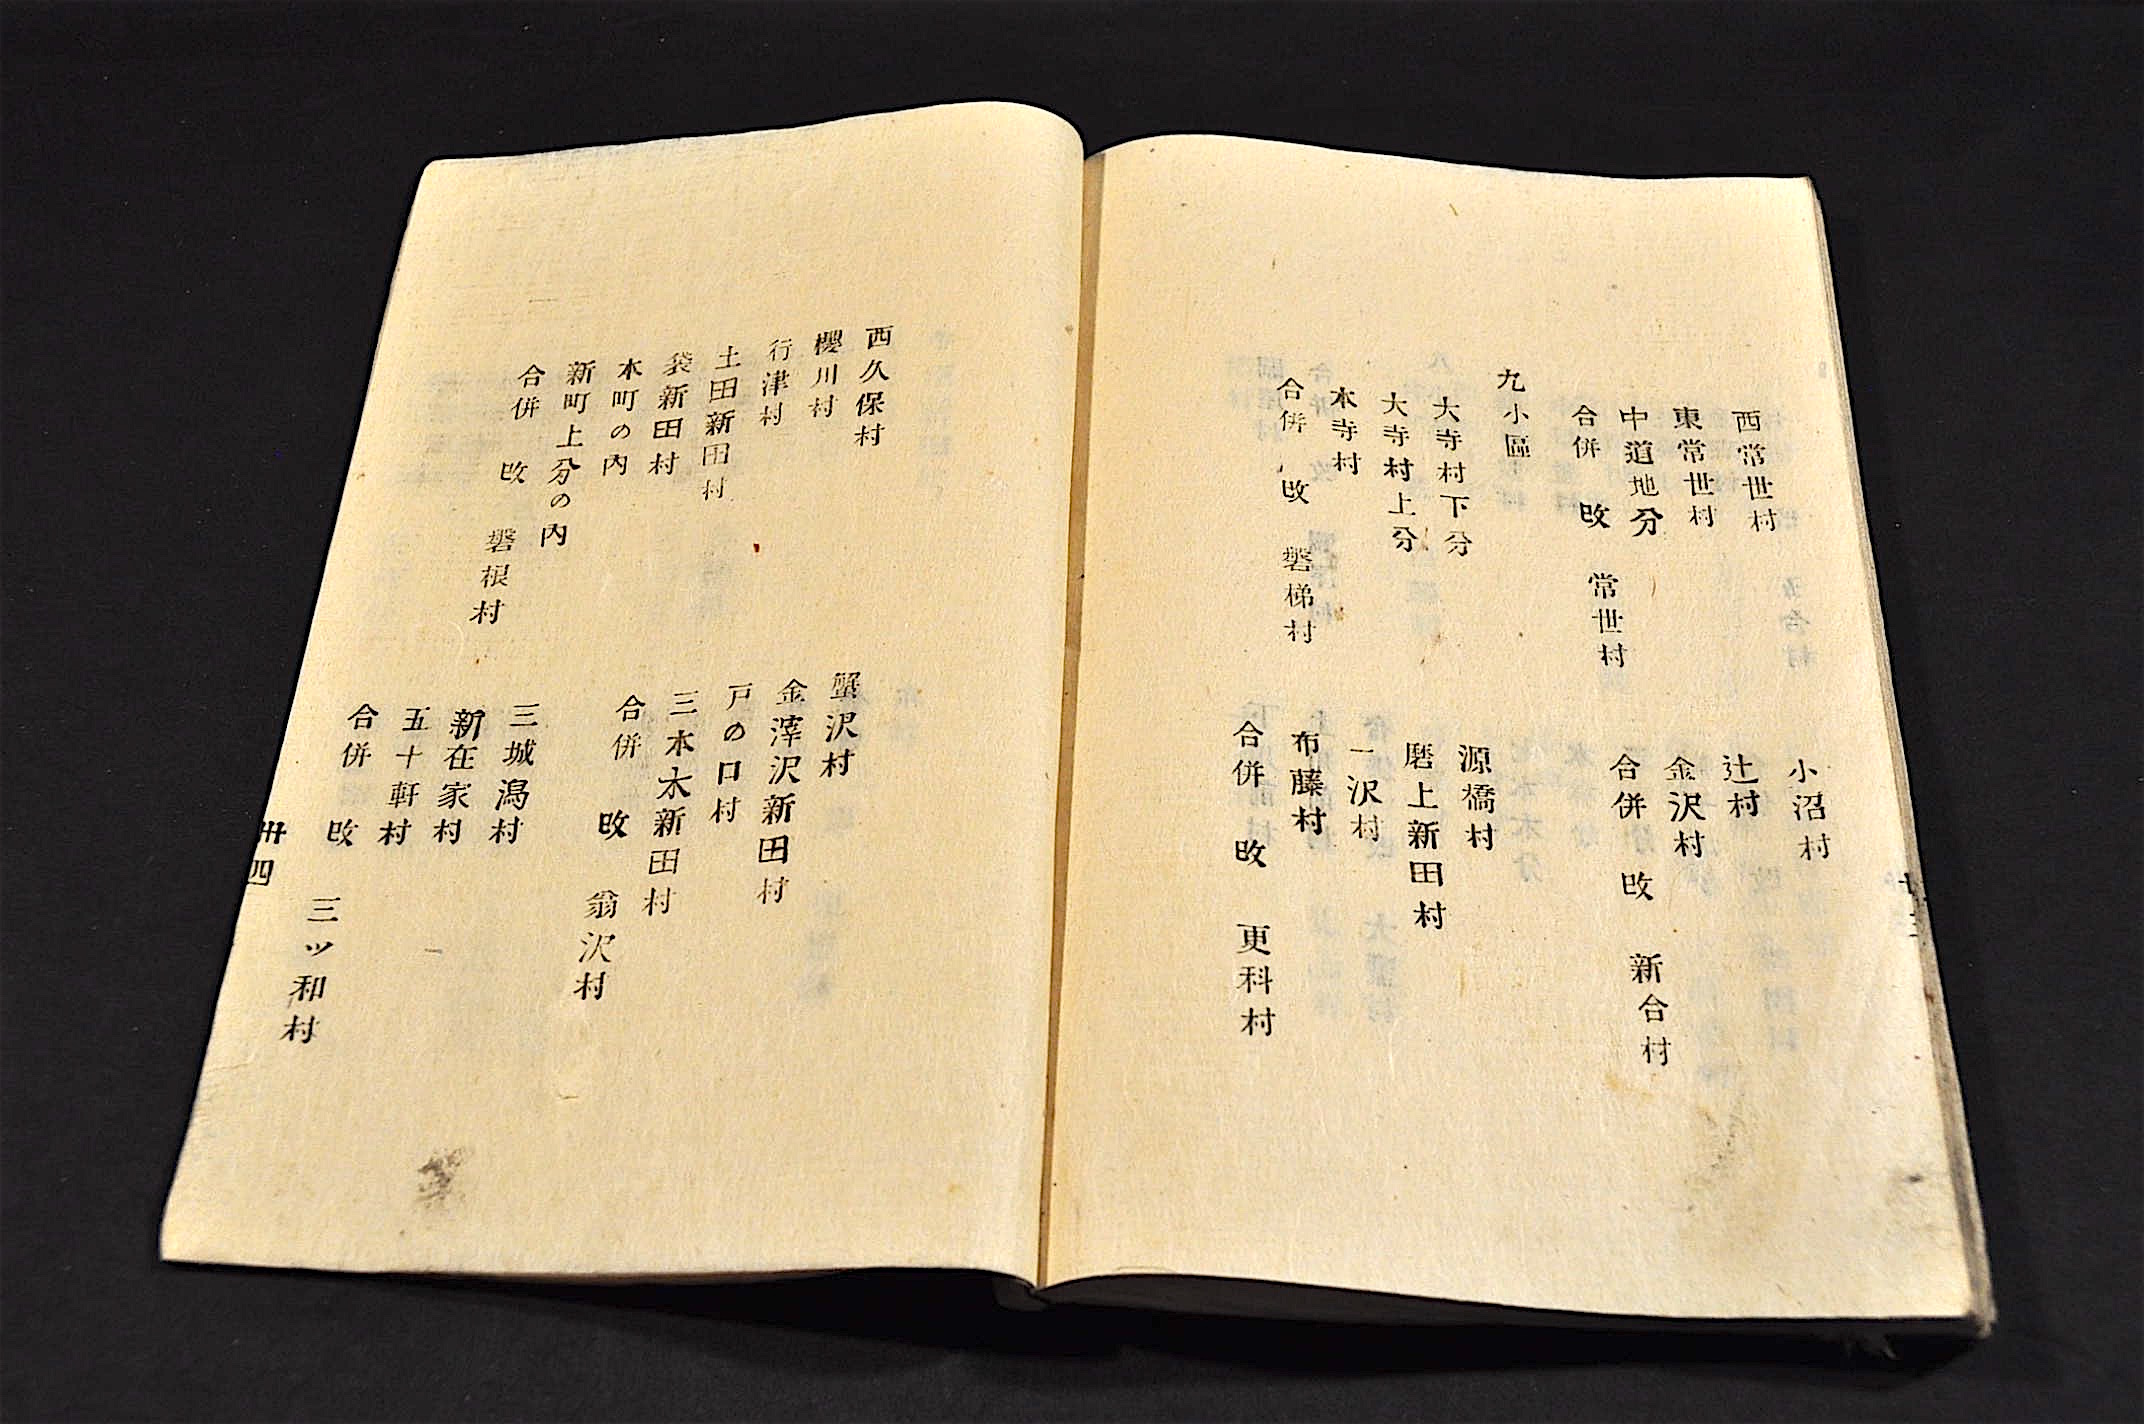 西常世村
東常世村
中道地分
合併 改 常世村
小沼村
辻村
金沢村
合併 改 新合村
九小區
大寺村下分
大寺村上分
本寺村
合併 改 磐梯村
源橋村
磨上新田村
一沢村
布藤村
合併 改 更科村
西久保村
櫻川村
行津村
土田新田村
袋新田村
本町の内
新町上分の内
合併 改 磐根村
蟹沢村
金滓沢新田村
戸の口村
三本木新田村
合併 改 翁沢村
三城潟村
新在家村
五十軒村
合併 改 三ツ和村
卅四